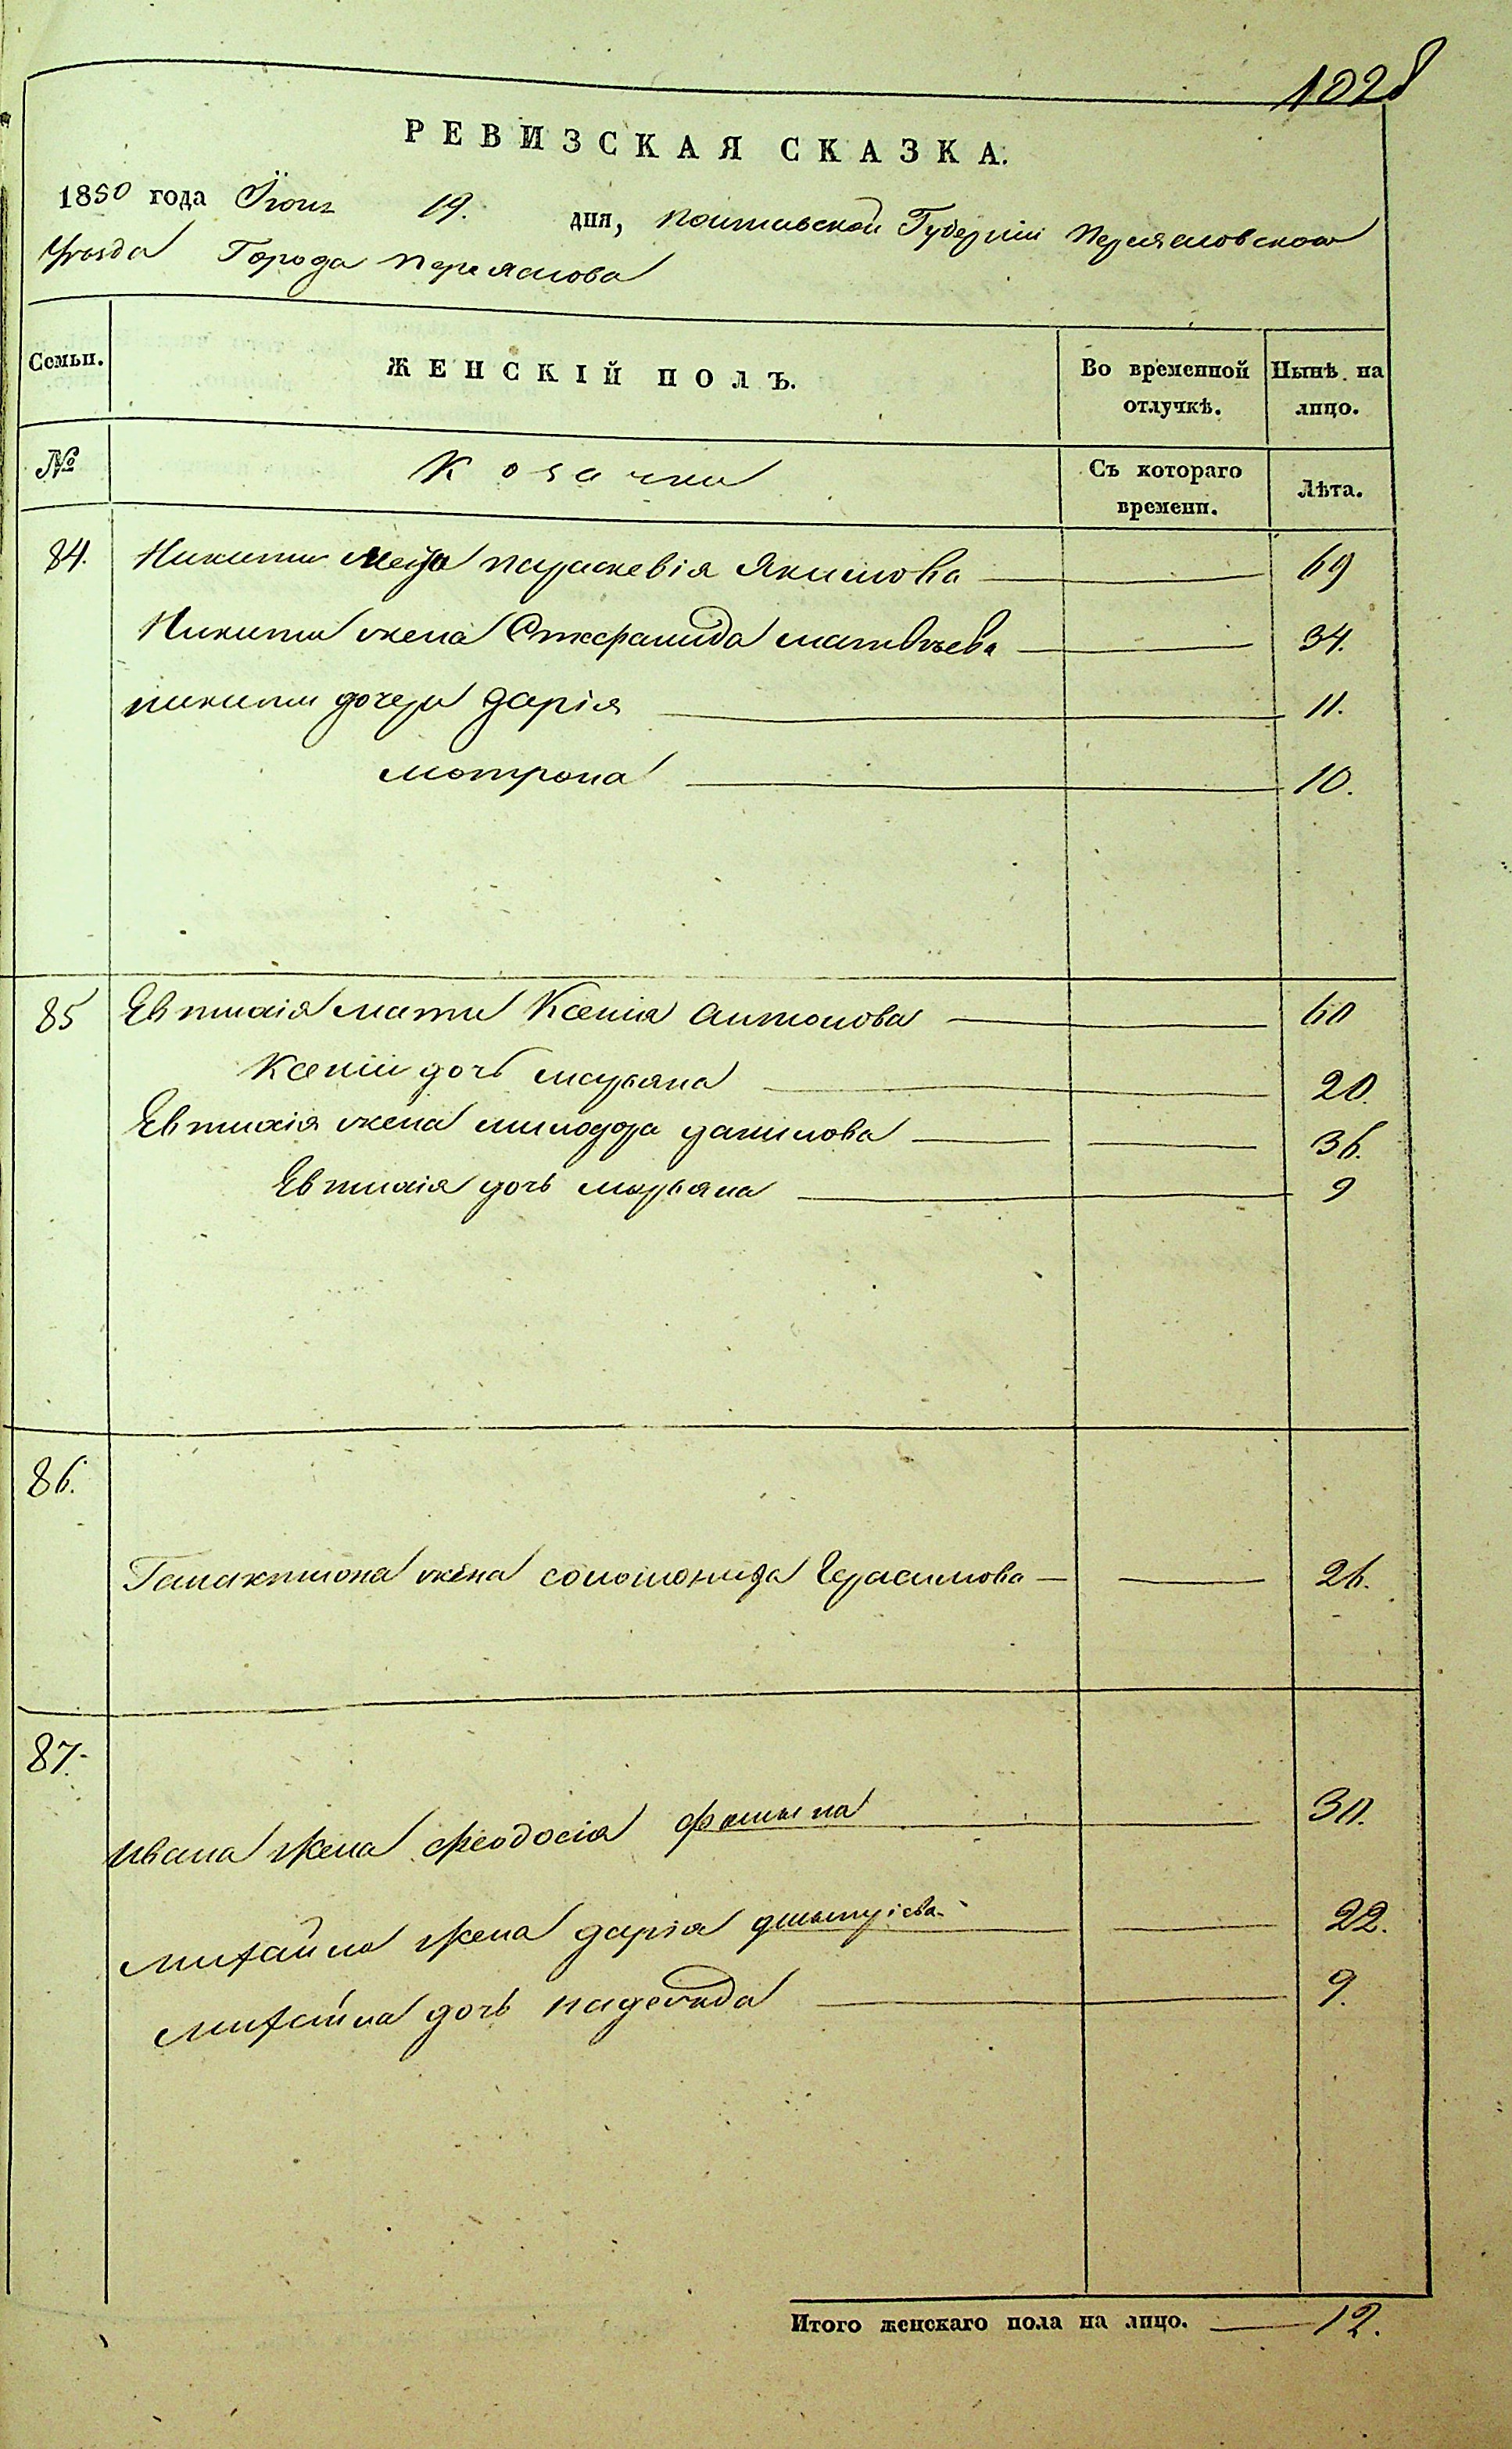 1028
РЕВИЗСКАЯ СКАЗКА.
1850 года Іюня 19. дня, Полтавской Губерніи Переясловскаго
Уезда Города Переяслова
Семьи. ЖЕНСКІЙ ПОЛЪ. Во временной отлучкѣ. Нынѣ на лицо.
№ Козачки Съ котораго времени. Лѣта.
84. Никиты Параскевія Якимова 69
Никиты жена Стефанида матвѣева 34.
никиты дочери дарія 11.
мотрона 10.
85 Евтихія мати Ксенія антонова 60
Ксеніи дочь марьяна 20.
Евтихія жена милодора данилова 36.
Евтихія дочь марьяна 9
86.
Галактиона жена соломонида Герасимова 26.
87.
Ивана жена феодосія фомина 30.
михайла жена дарія дмытріева 22.
михайла дочь надежда 9.
Итого женскаго пола на лицо. 12.